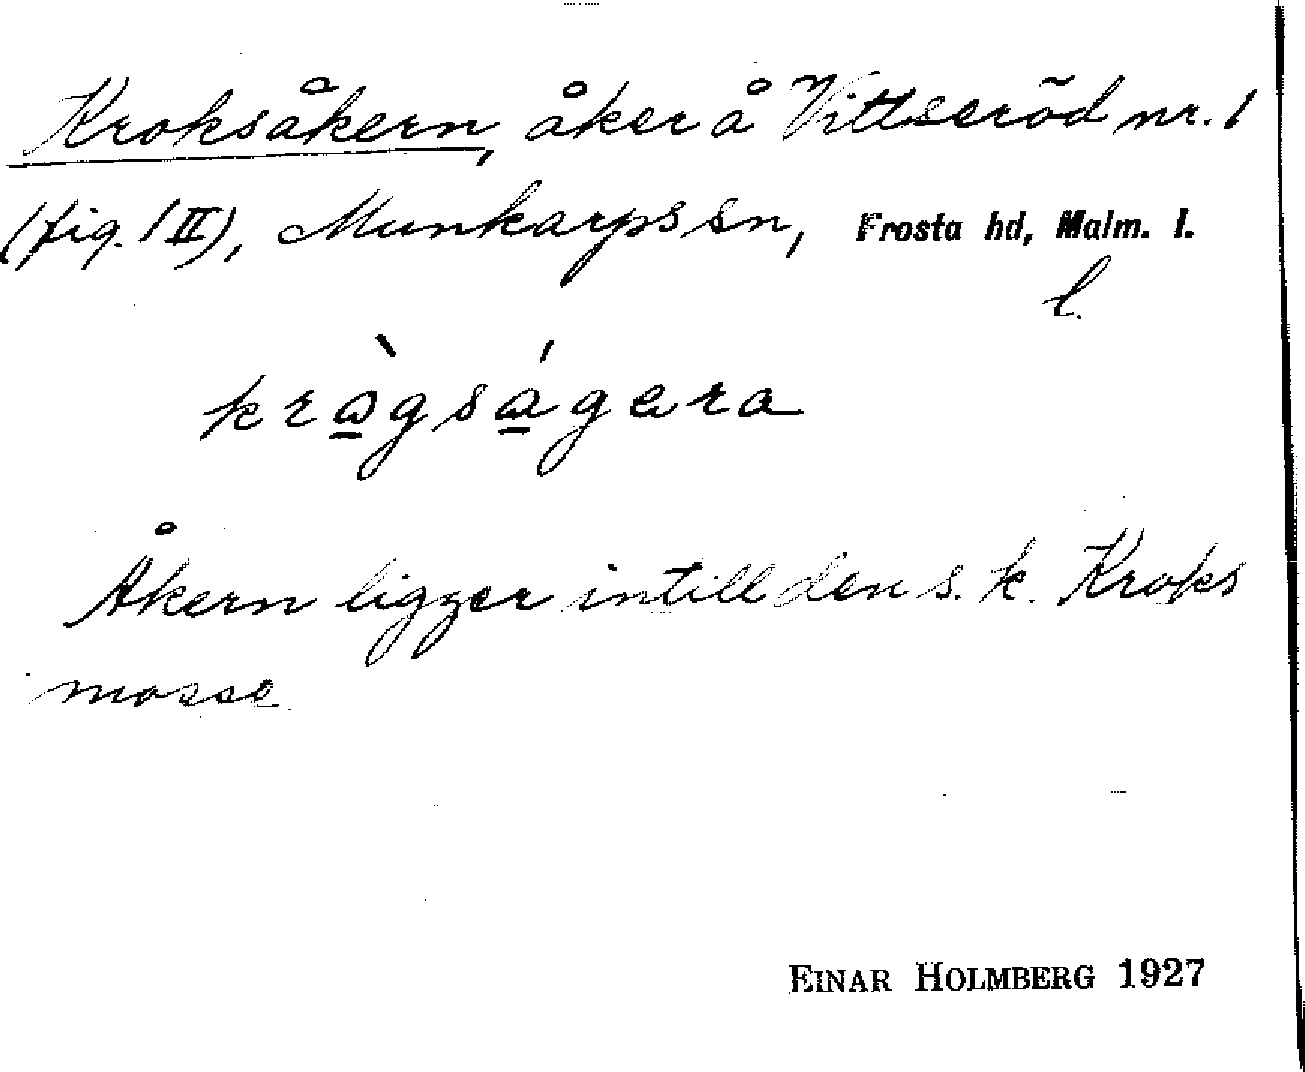 Kroksåkern, åker å Vittseröd nr. 1
(fig. 1 II), Munkarps sn, Frosta hd, Malm. l.
l.
krògságəra
Åkern ligger intill den s. k. Kroks
mosse
EINAR HOLMBERG 1927